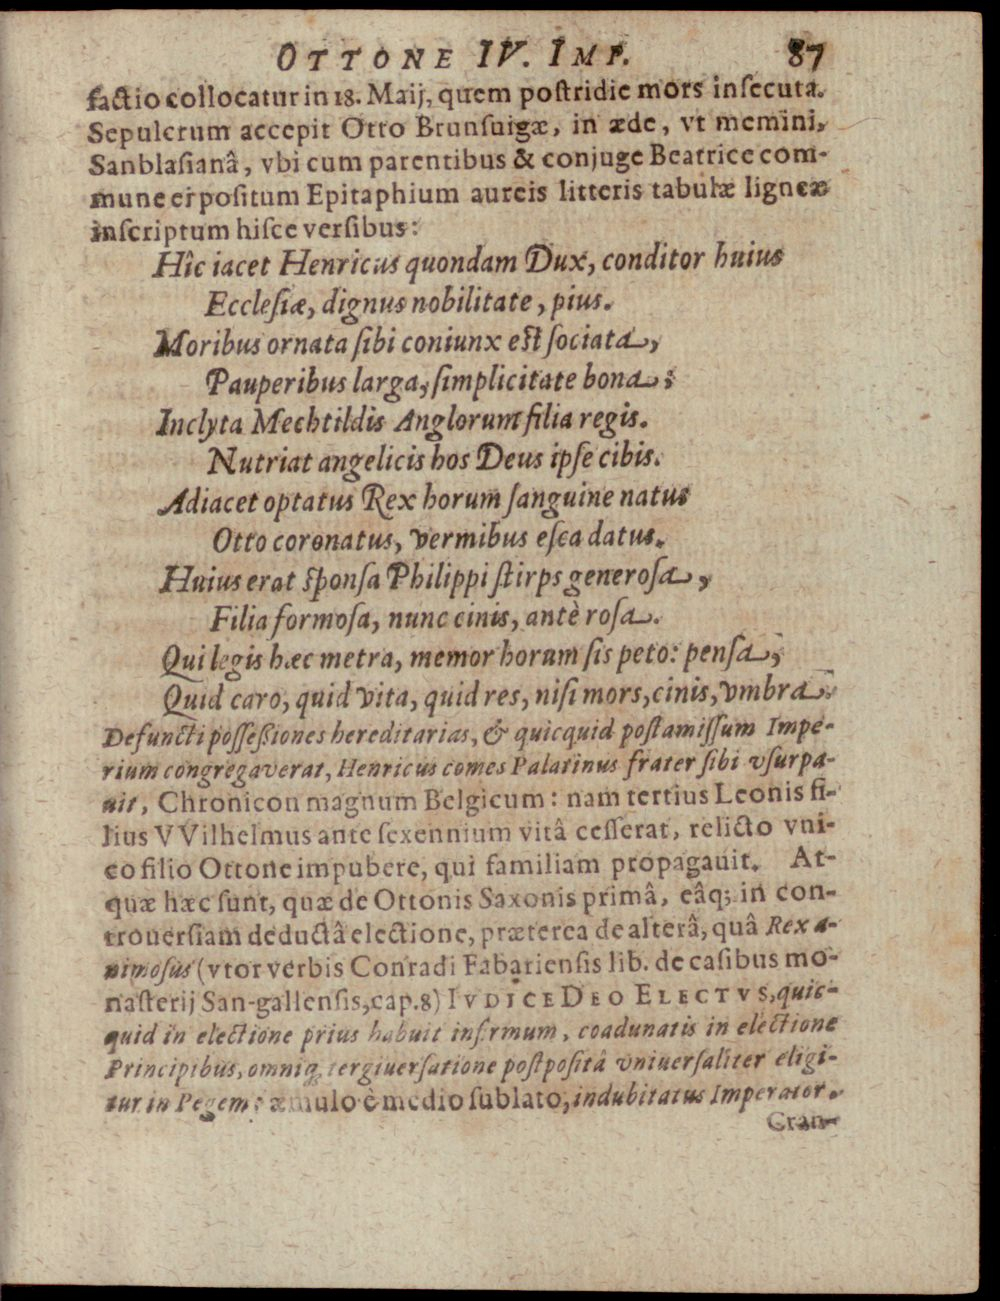 OTTONE IV. IMP. 87
factio collocatur in 18. Maij, quem postridie mors insecuta.
Sepulcrum accepit Otto Brunsuigæ, in æde, vt memini,
Sanblasianâ, vbi cum parentibus & conjuge Beatrice com-
mune eipositum Epitaphium aureis litteris tabulæ ligneæ
inscriptum hisce versibus:
Hîc iacet Henricus quondam Dux, conditor huius
Ecclesiæ, dignus nobilitate, pius.
Moribus ornata sibi coniunx est sociata,
Pauperibus larga, simplicitate bona:
Inclyta Mechtildis Anglorum filia regis.
Nutriat angelicis hos Deus ipse cibis.
Adiacet optatus Rex horum sanguine natus
Otto coronatus, vermibus esca datus.
Huius erat sponsa Philippi stirps generosa,
Filia formosa, nunc cinis, antè rosa.
Qui legis hæc metra, memor horum sis peto: pensa,
Quid caro, quid vita, quid res, nisi mors, cinis, vmbra.
Defuncti possessiones hereditarias, & quicquid post amissum Impe-
rium congregaverat, Henricus comes Palatinus frater sibi vsurpa-
uit, Chronicon magnum Belgicum: nam tertius Leonis fi-
lius VVilhelmus ante sexennium vitâ cesserat, relicto vni-
co filio Ottone impubere, qui familiam propagauit. At-
quæ hæc sunt, quæ de Ottonis Saxonis primâ, eâq; in con-
trouersiam deductâ electione, præterea de alterâ, quâ Rex a-
nimosus (vtor verbis Conradi Fabariensis lib. de casibus mo-
nasterij San-gallensis, cap. 8) IVDICE DEO ELECTVS, quic-
quid in electione prius habuit infirmum, coadunatis in electione
Principibus, omniq; tergiuersatione postpositâ vniuersaliter eligi-
tur in Regem: æmulo è medio sublato, indubitatus Imperator.
Cran-